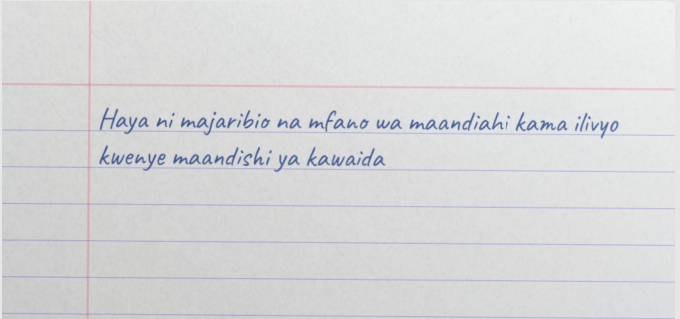 Haya ni majaribio na mfano wa maandiahi kama ilivyo
kwenye maandishi ya kawaida